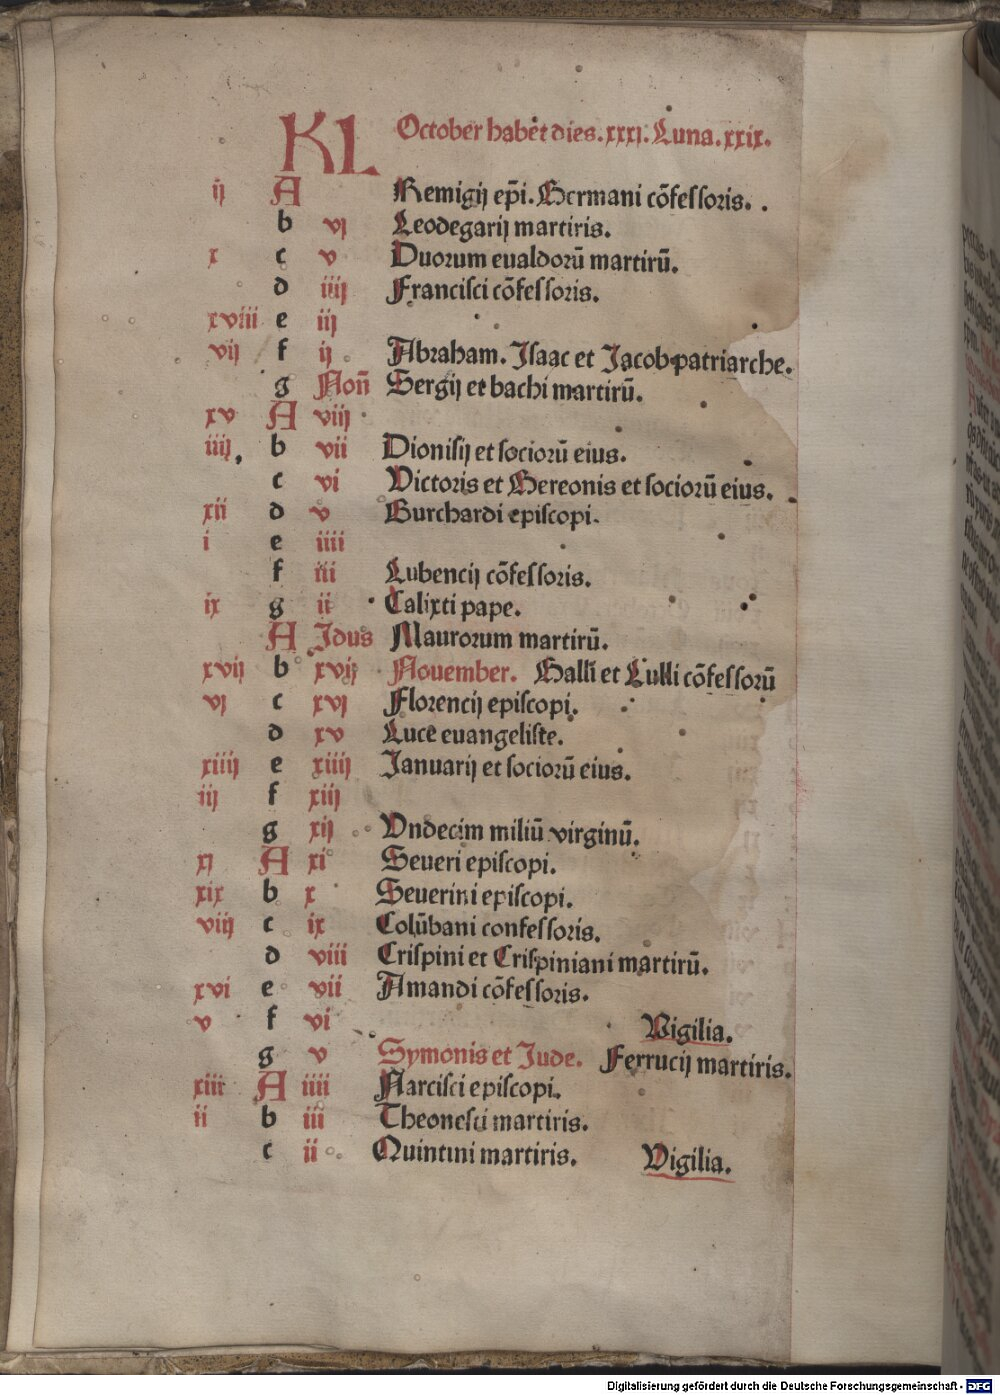 KL October habēt dies.xxxj. Luna.xxix.
ij A Remigij ep̄i. Germani cōfessoris. .
b vj Leodegarij martiris.
x c v Duorum eualdorū martirū.
d iiij Francisci cōfessoris.
xviii e iij
vij f ij Abraham. Isaac et Jacob patriarche.
g Non̄ Sergij et bachi martirū.
xv A viij
iiij b vii Dionisij et sociorū eius.
c vi Victoris et Gereonis et sociorū eius.
xii d v Burchardi episcopi.
i e iiii
f iii Lubencij cōfessoris.
ix g ii Calixti pape.
A Idus Maurorum martirū.
xvij b xvij Nouember. Galli et Lulli cōfessorū
vj c xvj Florencij episcopi.
d xv Luce euangeliste.
xiiij e xiiij Januarij et sociorū eius.
iij f xiij
g xij Vndecim miliū virginū.
xj A xi Seueri episcopi.
xix b x Seuerini episcopi.
viij c ix Colūbani confessoris.
d viii Crispini et Crispiniani martirū.
xvi e vii Amandi cōfessoris.
v f vi Vigilia.
g v Symonis et Jude. Ferrucij martiris.
xiii A iiii Narcisci episcopi.
ii b iii Theonesti martiris.
c ii Quintini martiris. Vigilia.
Digitalisierung gefördert durch die Deutsche Forschungsgemeinschaft - DFG